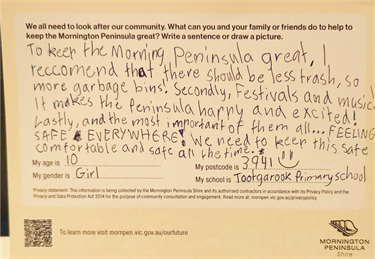 We all need to look after our community. What can you and your family or friends do to help to
keep the Mornington Peninsula great? Write a sentence or draw a picture.
To keep the Morning Peninsula great, I
reccomend that there should be less trash, so
more garbage bins! Secondly, Festivals and music!
It makes the Peninsula happy and excited!
Lastly, and the most important of them all... FEELING
SAFE EVERYWHERE! We need to keep this safe
comfortable and safe all the time.
My age is 10 My postcode is 3941
My gender is Girl My school is Tootgarook Primary school
Privacy statement: This information is being collected by the Mornington Peninsula Shire and its authorised contractors in accordance with its Privacy Policy and the
Privacy and Data Protection Act 2014 for the purpose of community consultation and engagement. Read more at: mornpen.vic.gov.au/privacypolicy
To learn more visit mornpen.vic.gov.au/ourfuture
MORNINGTON
PENINSULA
Shire